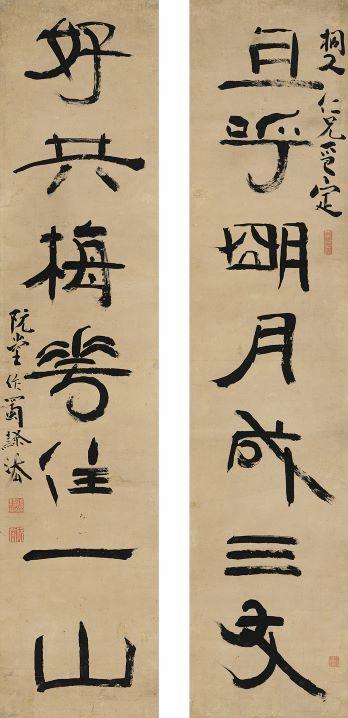 桐人仁兄 定
且呼朙月成三友
好共梅花住一山
阮堂作蜀隸法